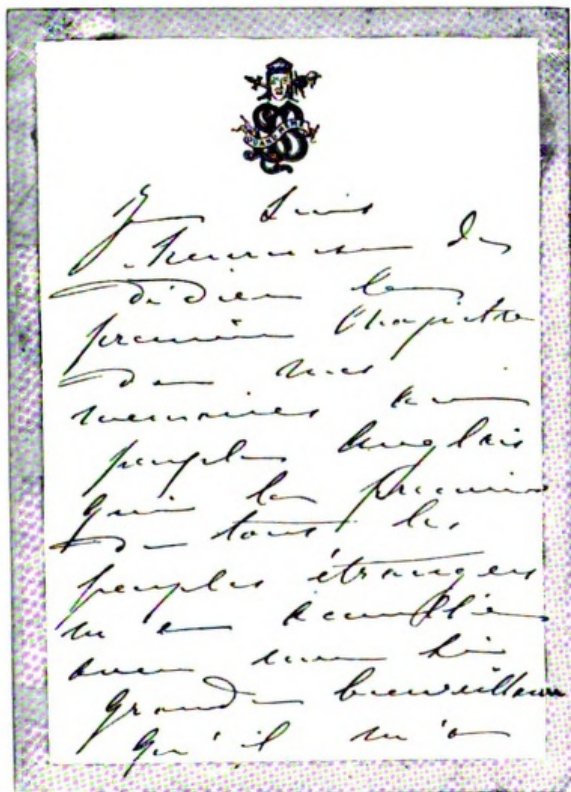 QUAND MÊME
Je suis
heureuse de
dédier le
premier Chapitre
de mes
memoires au
peuple Anglais
qui le premier
de tous les
peuples étrangers
m'a accueillie
avec une si
grande bienveillance
qu'il m'a